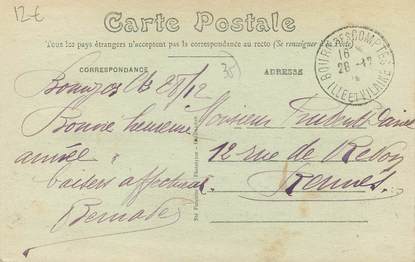 12€
Carte Postale
Tous les pays étrangers n'acceptent pas la correspondance au recto (Se renseigner
CORRESPONDANCE
35
ADRESSE
BOURG DES COMPTES
16
28 - 12
ILLE ET VILAINE
28/12
Bonne heureuse
année
baisers affectueux
Monsieur
12 rue de Redon
Rennes